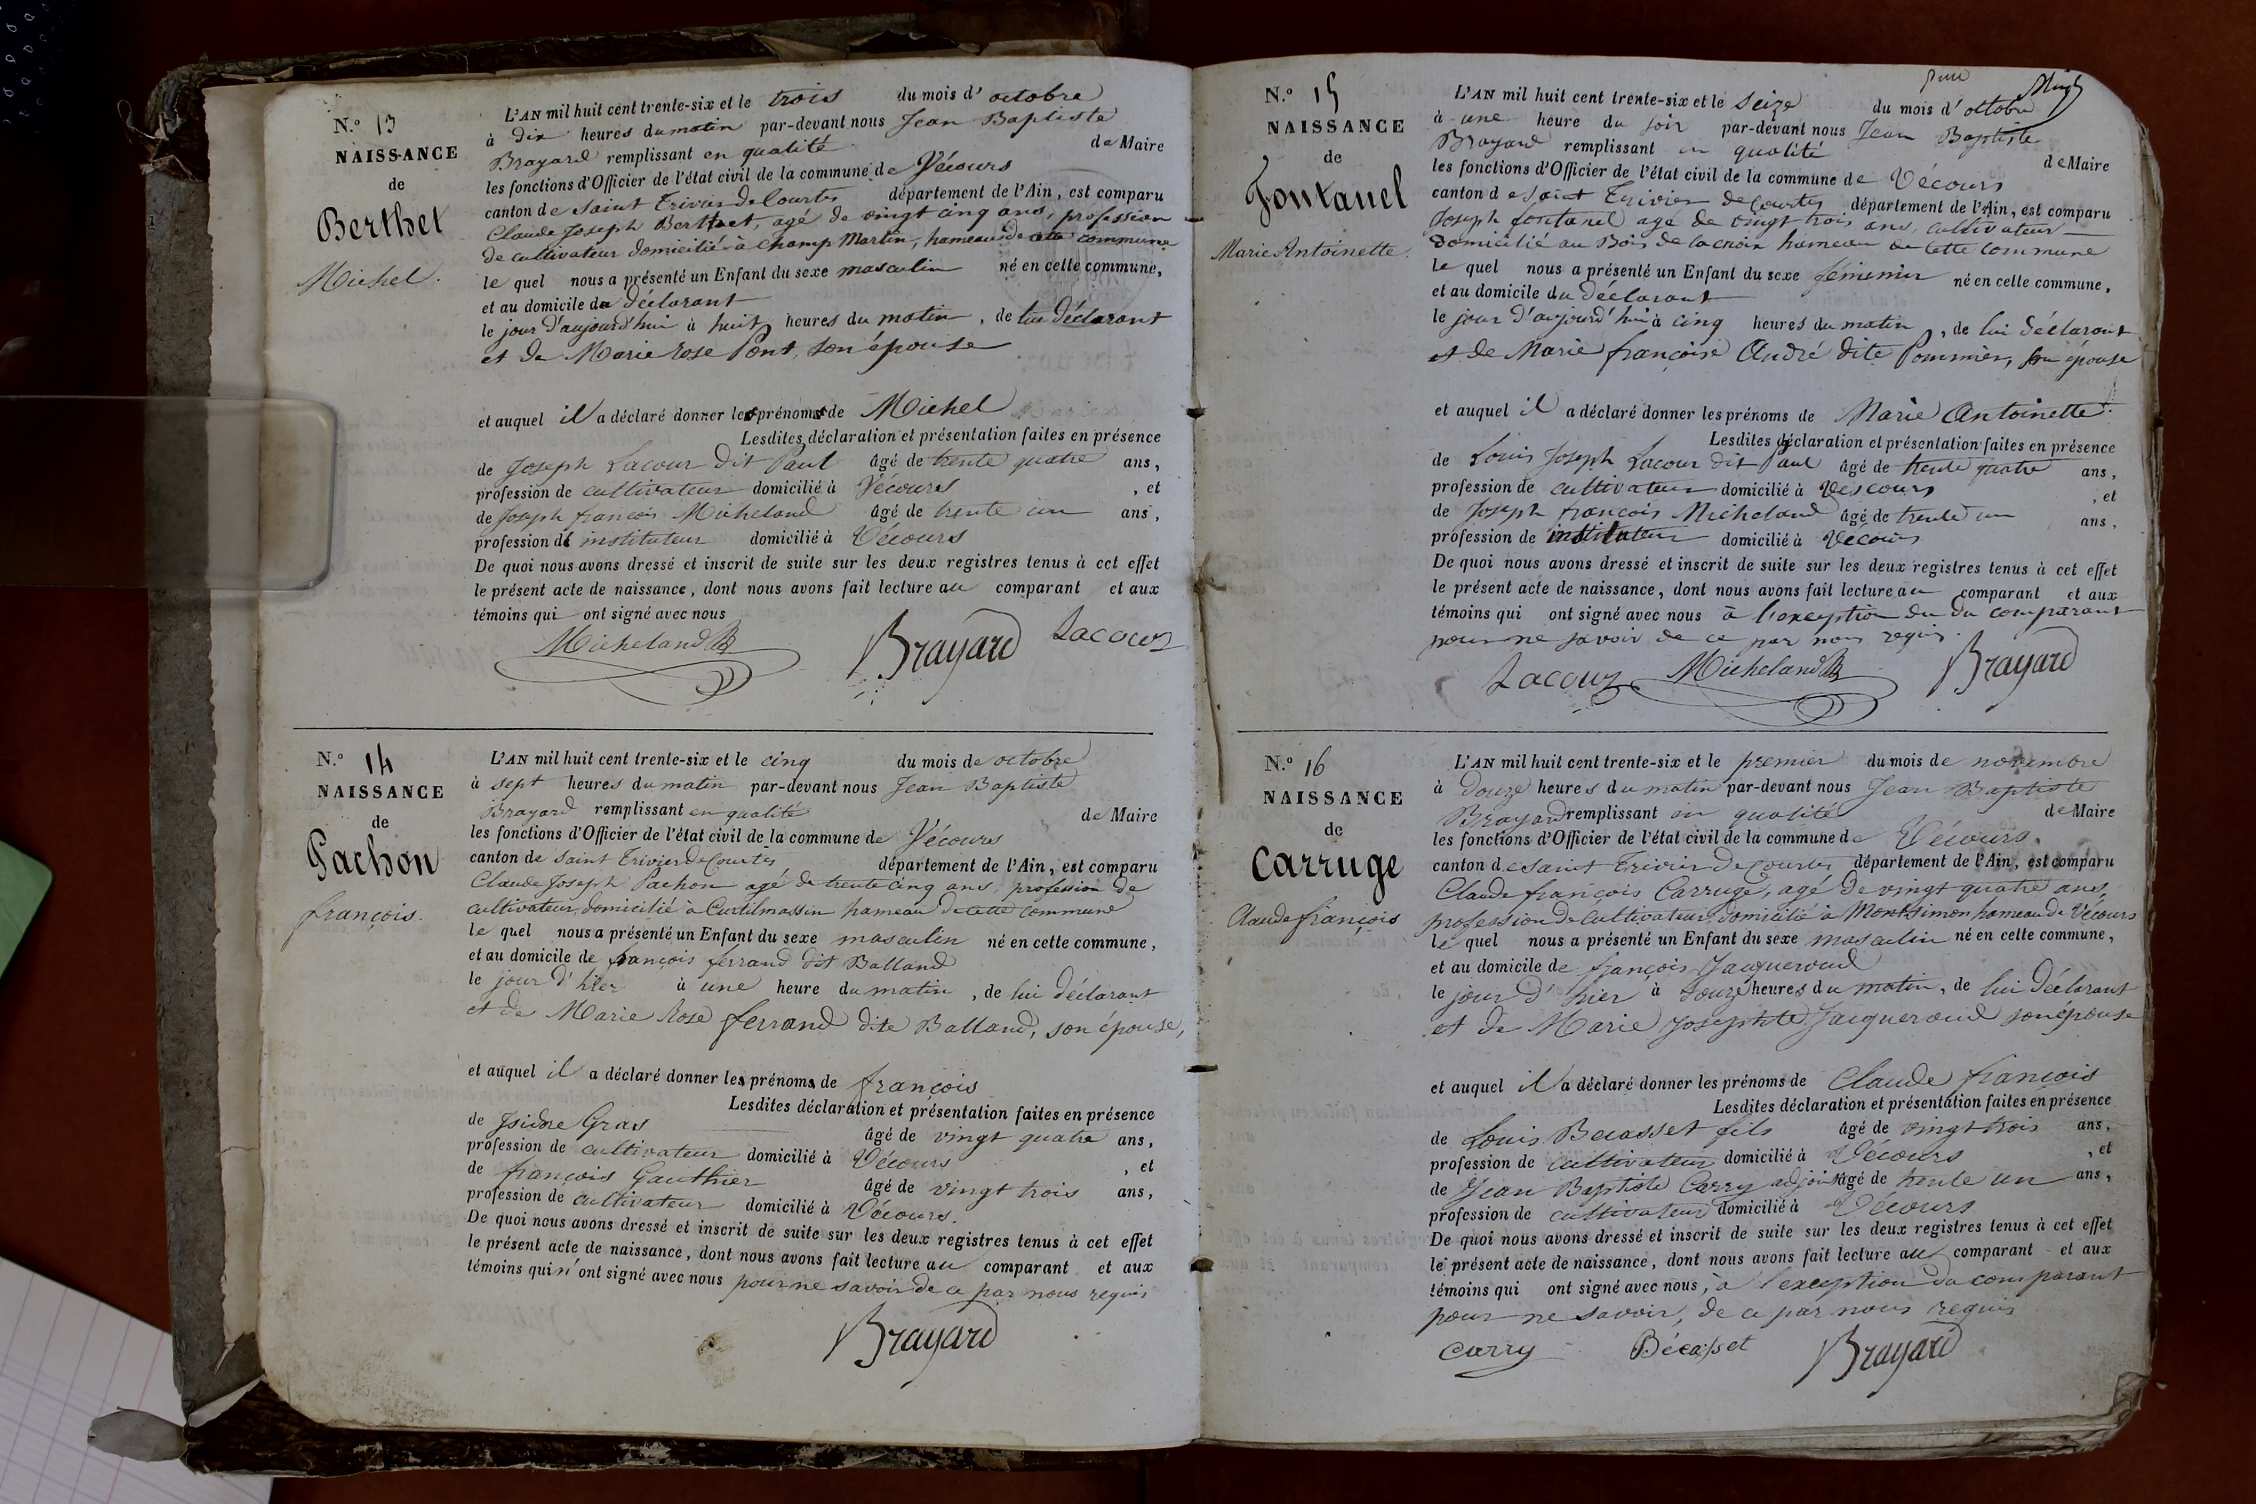 N.º 13
NAISSANCE
de
Berthet
Michel.
L'AN mil huit cent trente-six et le trois du mois d'octobre
à dix heures du matin par-devant nous Jean Baptiste
Brayard remplissant en qualité de Maire
les fonctions d'Officier de l'état civil de la commune de Vécours
canton de Saint Trivier de Courtes département de l'Ain, est comparu
Claude Joseph Berthet, agé de vingt cinq ans, profession
de cultivateur domicilié à Champ Martin, hameau de cette commune
le quel nous a présenté un Enfant du sexe masculin né en cette commune,
et au domicile du déclarant
le jour d'aujourd'hui à huit heures du matin, de lui déclarant
et de Marie Rose Pont, son épouse
et auquel il a déclaré donner les prénoms de Michel
Lesdites déclaration et présentation faites en présence
de Joseph Lacour dit Paul âgé de trente quatre ans,
profession de cultivateur domicilié à Vécours, et
de Joseph françois Micheland âgé de trente un ans,
profession de instituteur domicilié à Vécours
De quoi nous avons dressé et inscrit de suite sur les deux registres tenus à cet effet
le présent acte de naissance, dont nous avons fait lecture au comparant et aux
témoins qui ont signé avec nous
Micheland Brayard Lacour
N.º 14
NAISSANCE
de
Pachon
françois.
L'AN mil huit cent trente-six et le cinq du mois de octobre
à sept heures du matin par-devant nous Jean Baptiste
Brayard remplissant en qualité de Maire
les fonctions d'Officier de l'état civil de la commune de Vécours
canton de Saint Trivier de Courtes département de l'Ain, est comparu
Claude Joseph Pachon agé de trente cinq ans, profession de
cultivateur, domicilié à Curtilmassin hameau de cette commune
le quel nous a présenté un Enfant du sexe masculin né en cette commune,
et au domicile de françois ferrand dit Balland
le jour d'hier à une heure du matin, de lui déclarant
et de Marie Rose ferrand dite Balland, son épouse,
et auquel il a déclaré donner les prénoms de françois
Lesdites déclaration et présentation faites en présence
de Isidre Gras âgé de vingt quatre ans,
profession de cultivateur domicilié à Vécours, et
de françois Gauthier âgé de vingt trois ans,
profession de cultivateur domicilié à Vécours.
De quoi nous avons dressé et inscrit de suite sur les deux registres tenus à cet effet
le présent acte de naissance, dont nous avons fait lecture au comparant et aux
témoins qui n'ont signé avec nous pour ne savoir de ce par nous requis
Brayard
N.º 15
NAISSANCE
de
Fontanel
Marie Antoinette.
L'AN mil huit cent trente-six et le seize du mois d'octobre
à une heure du soir par-devant nous Jean Baptiste
Brayard remplissant en qualité de Maire
les fonctions d'Officier de l'état civil de la commune de Vécours
canton de Saint Trivier de Courtes département de l'Ain, est comparu
Joseph fontanel agé de vingt trois ans, cultivateur
domicilié au Bois de la croix hameau de cette commune
le quel nous a présenté un Enfant du sexe féminin né en cette commune,
et au domicile du déclarant
le jour d'aujourd'hui à cinq heures du matin, de lui déclarant
et de Marie françoise André dite Pommier, son épouse
et auquel il a déclaré donner les prénoms de Marie Antoinette.
Lesdites déclaration et présentation faites en présence
de Louis Joseph Lacour dit Paul âgé de trente quatre ans,
profession de cultivateur domicilié à Vescours, et
de Joseph françois Micheland âgé de trente un ans,
profession de instituteur domicilié à Vécours
De quoi nous avons dressé et inscrit de suite sur les deux registres tenus à cet effet
le présent acte de naissance, dont nous avons fait lecture au comparant et aux
témoins qui ont signé avec nous à l'exception du du comparant
pour ne savoir de ce par nous requis.
Lacour Micheland Brayard
N.º 16
NAISSANCE
de
Carruge
Claude françois
L'AN mil huit cent trente-six et le premier du mois de novembre
à douze heures du matin par-devant nous Jean Baptiste
Brayard remplissant en qualité de Maire
les fonctions d'Officier de l'état civil de la commune de Vécours.
canton de Saint Trivier de Courtes département de l'Ain, est comparu
Claude françois Carruge, agé de vingt quatre ans,
profession de cultivateur, domicilié à Montsimon hameau de Vécours
le quel nous a présenté un Enfant du sexe masculin né en cette commune,
et au domicile de françois Jacqueroud
le jour d'hier à douze heures du matin, de lui déclarant
et de Marie Josephte Jacqueroud son épouse
et auquel il a déclaré donner les prénoms de Claude françois
Lesdites déclaration et présentation faites en présence
de Louis Becasset fils âgé de vingt trois ans,
profession de cultivateur domicilié à Vécours, et
de Jean Baptiste Carry adjoint âgé de trente un ans,
profession de cultivateur domicilié à Vécours
De quoi nous avons dressé et inscrit de suite sur les deux registres tenus à cet effet
le présent acte de naissance, dont nous avons fait lecture au comparant et aux
témoins qui ont signé avec nous, à l'exception du comparant
pour ne savoir, de ce par nous requis
Carry Bécasset Brayard